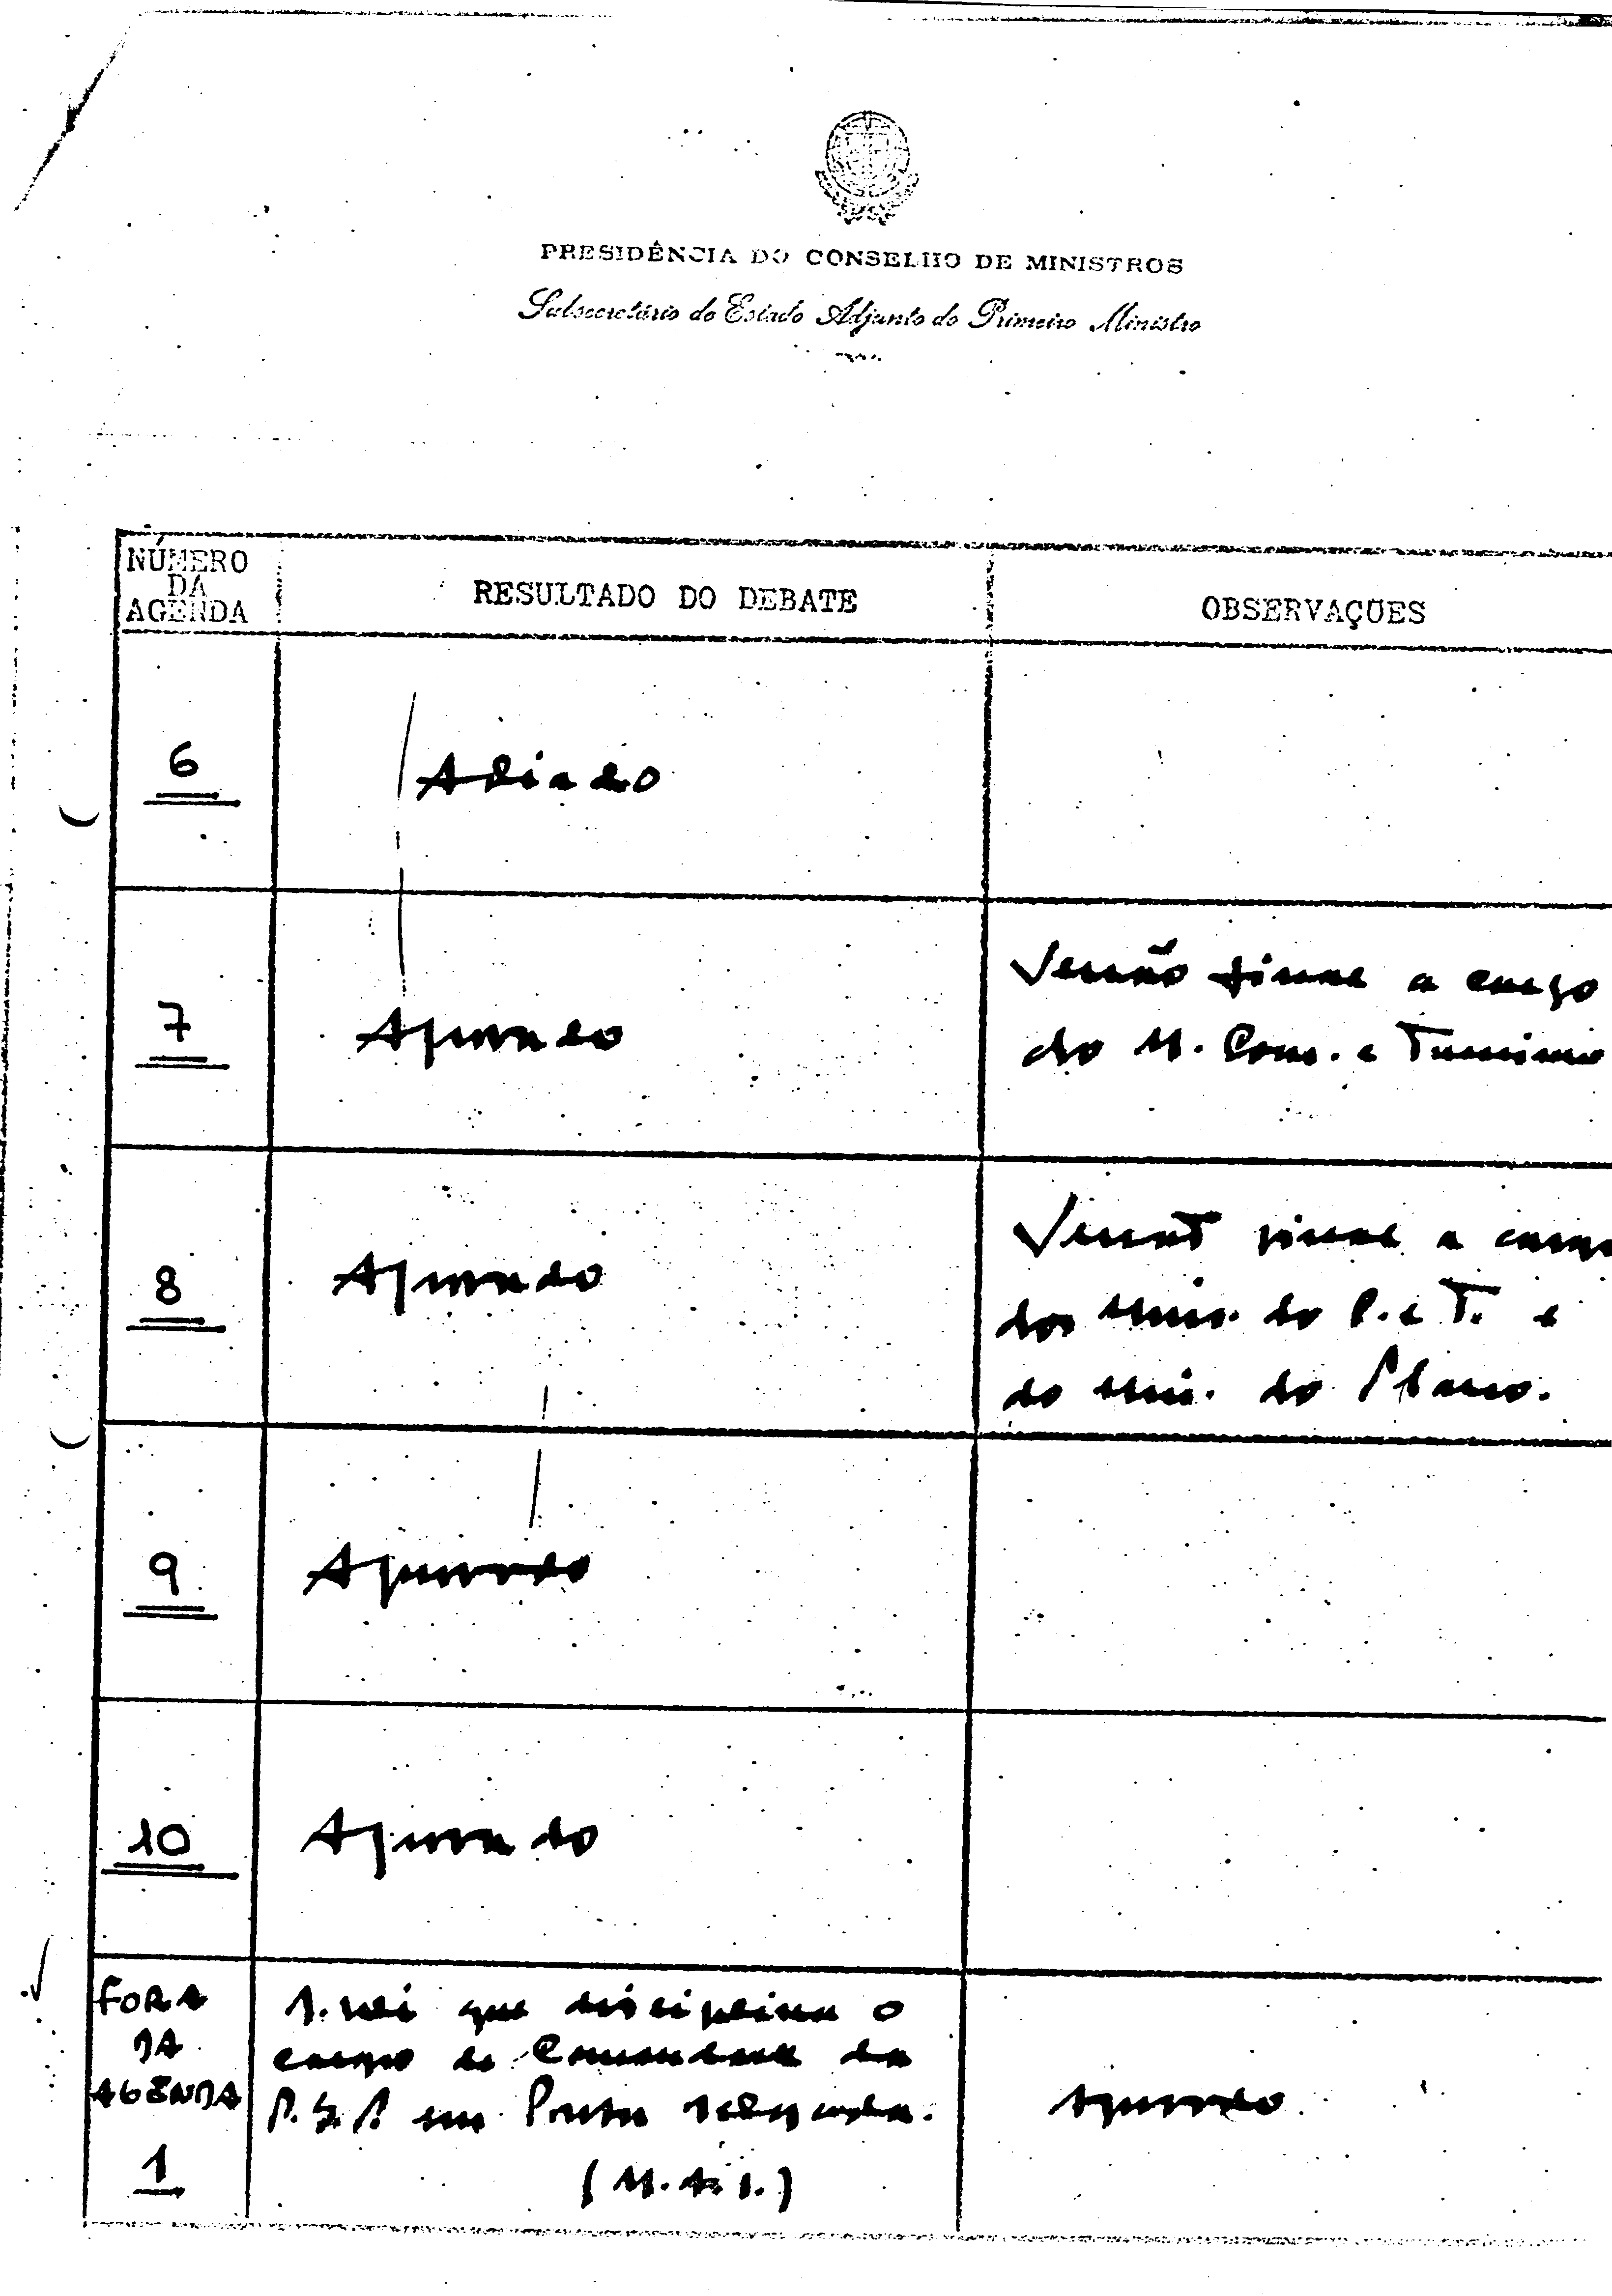 PRESIDÊNCIA DO CONSELHO DE MINISTROS
Subsecretário de Estado Adjunto do Primeiro Ministro
NÚMERO
DA
AGENDA
RESULTADO DO DEBATE
OBSERVAÇÕES
6
Adiado
7
Aprovado
Versão final a cargo
do M. Com. e Turismo
8
Aprovado
Versão final a cargo
dos Min. do P. e T. e
do Min. do Plano.
9
Aprovado
10
Aprovado
FORA
DA
AGENDA
1
D. Lei que disciplina o
cargo de Comandante da
P. S. P. em Ponta Delgada.
(M. A. I.)
Aprovado